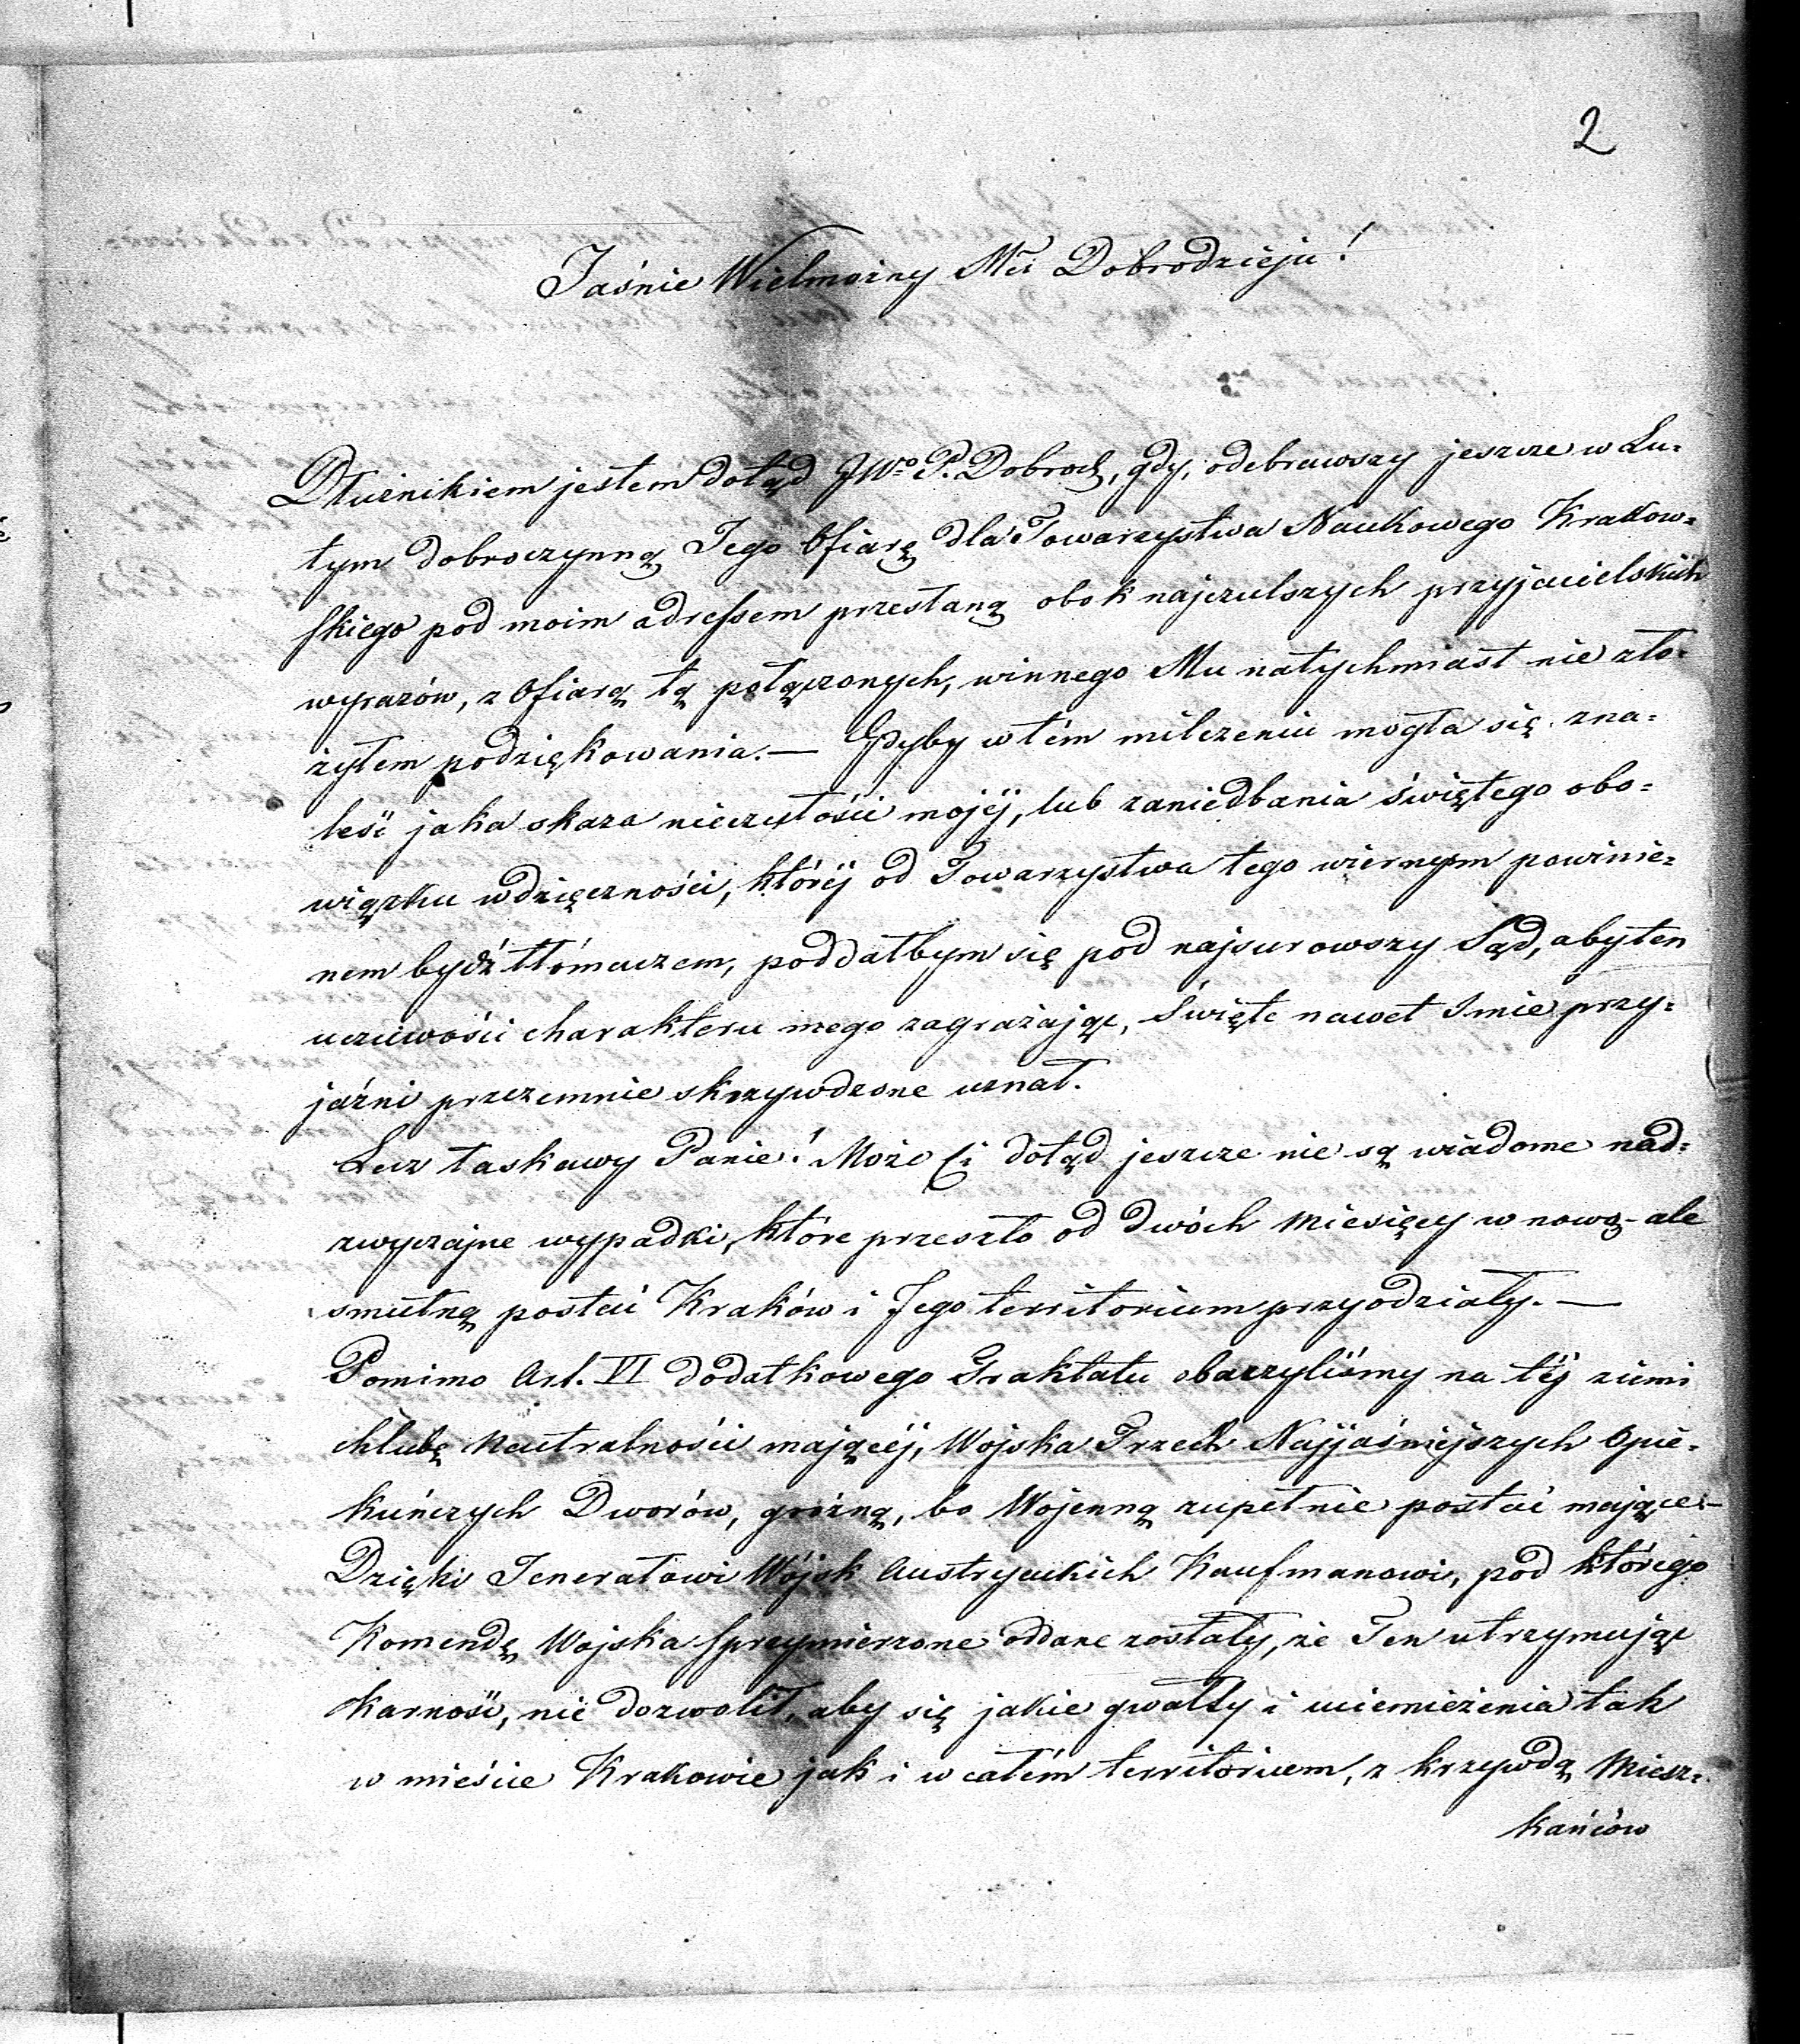 2
Jaśnie Wielmożny Mci Dobrodzieju!
Dłużnikiem jestem dotąd JWo P. Dobrod, gdy, odebrawszy jeszcze w Lu=
tym dobroczynną Jego Ofiarę dla Towarzystwa Naukowego Krakow=
skiego pod moim adressem przesłaną obok najczulszych przyjacielskich
wyrazów, z Ofiarą tą połączonych, winnego Mu natychmiast nie zło=
żyłem podziękowania. — Gdyby w tém milczeniu mogła się zna=
leść jaka skaza nieczułości mojéj, lub zaniedbania świętego obo=
wiązku wdzięczności, któréj od Towarzystwa tego wiernym powinie=
nem bydź tłómaczem, poddałbym się pod najsurowszy Sąd, aby ten
uczciwości charakteru mego zagrażając, Święte nawet Imie przy=
jaźni przezemnie skrzywdzone uznał.
Lecz łaskawy Panie! Może Ci dotąd jeszcze nie są wiadome nad=
zwyczajne wypadki, które przeszło od dwóch Miesięcy w nową - ale
smutną postać Kraków i Jego territorium przyodziały. —
Pomimo Art. VI dodatkowego Traktatu obaczyliśmy na téj ziemi
chlubę Neutralności mającéj, Wojska Trzech Najjaśniejszych Opie=
kuńczych Dworów, groźną, bo Wojenną zupełnie postać mające —
Dzięki Jenerałowi Wójsk Austryackich Kaufmanowi, pod którego
Komendę Wojska sprzymierzone oddane zostały, że Ten utrzymując
Karność, nie dozwolił, aby się jakie gwałty i uciemiężenia tak
w mieście Krakowie jak i w całém territorium, z krzywdą Miesz=
kańców